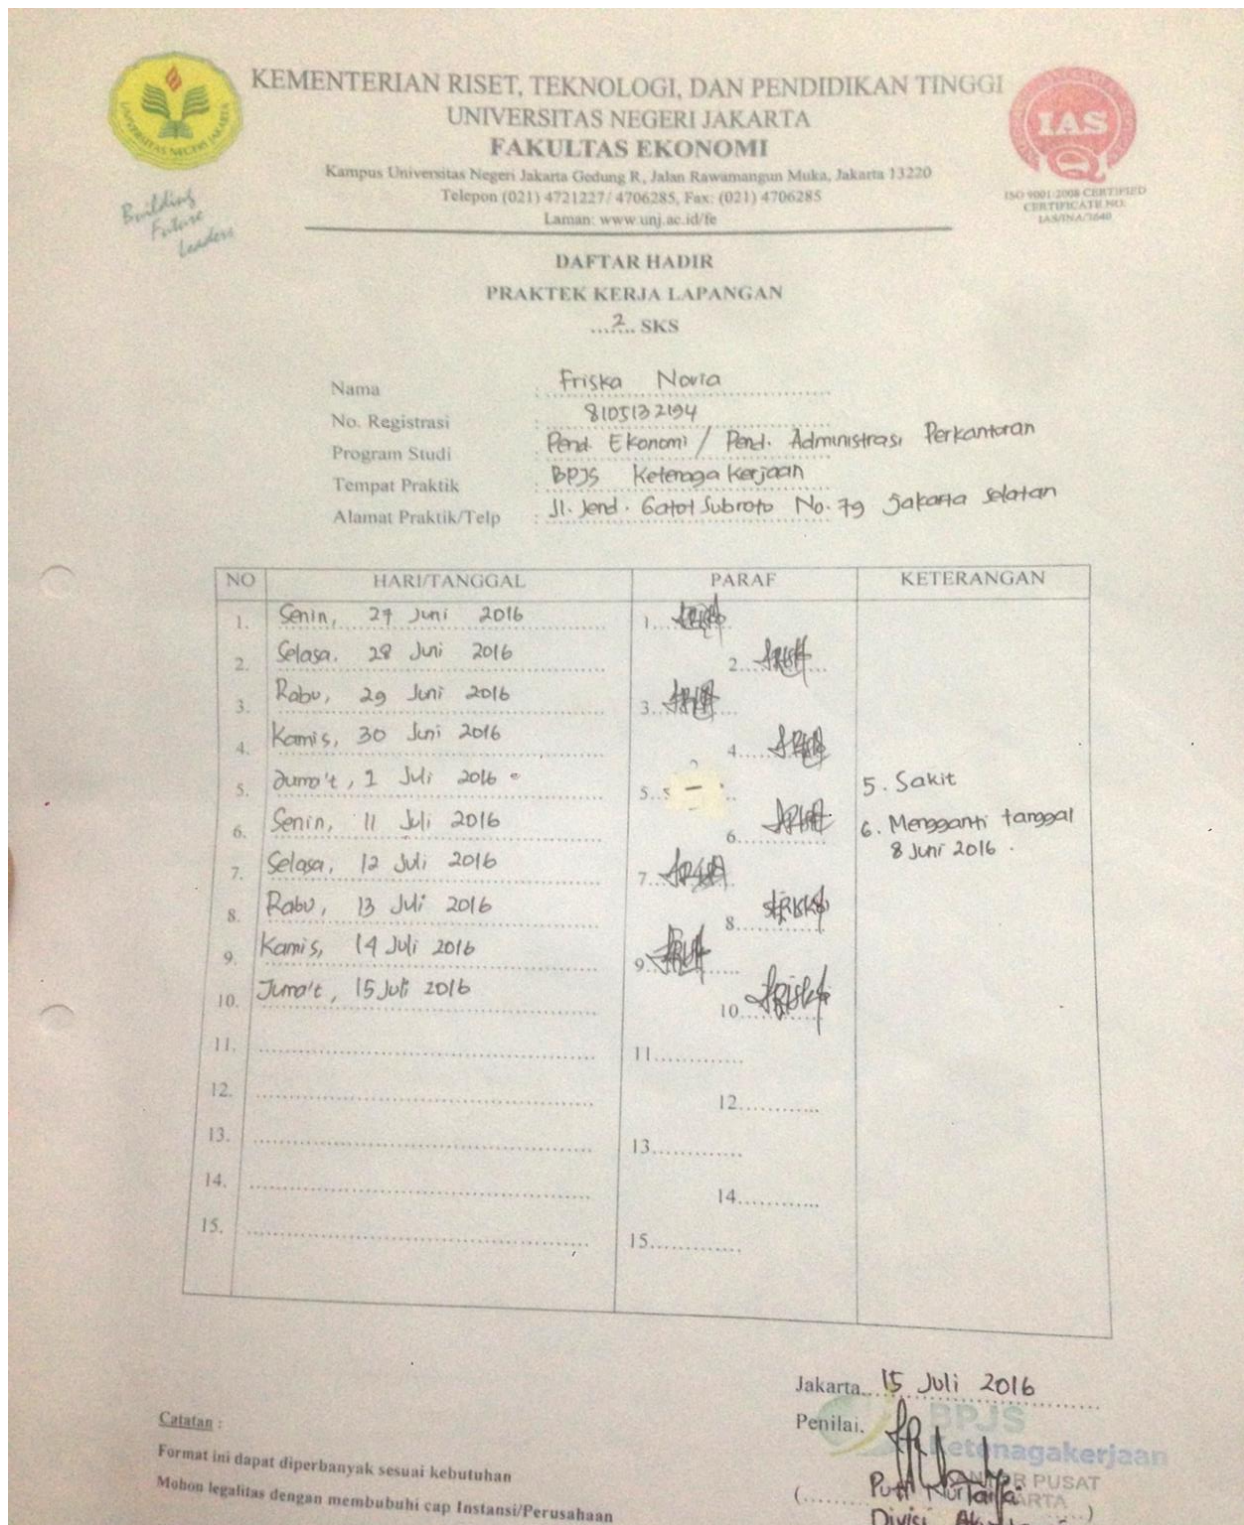 KEMENTERIAN RISET, TEKNOLOGI, DAN PENDIDIKAN TINGGI
UNIVERSITAS NEGERI JAKARTA
FAKULTAS EKONOMI
Kampus Universitas Negeri Jakarta Gedung R, Jalan Rawamangun Muka, Jakarta 13220
Telepon (021) 4721227/ 4706285, Fax: (021) 4706285
Laman: www.unj.ac.id/fe
UNIVERSITAS NEGERI JAKARTA
Building
Future
Leaders
IAS
ISO 9001:2008 CERTIFIED
CERTIFICATE NO.
IAS/INA/3640
DAFTAR HADIR
PRAKTEK KERJA LAPANGAN
...2.. SKS
Nama : Friska Novia
No. Registrasi : 8105132194
Program Studi : Pend. Ekonomi / Pend. Administrasi Perkantoran
Tempat Praktik : BPJS Ketenaga Kerjaan
Alamat Praktik/Telp : Jl. Jend. Gatot Subroto No. 79 Jakarta Selatan
NO HARI/TANGGAL PARAF KETERANGAN
1. Senin, 27 Juni 2016 1.
2. Selasa, 28 Juni 2016 2.
3. Rabu, 29 Juni 2016 3.
4. Kamis, 30 Juni 2016 4.
5. Juma't, 1 Juli 2016 5. - 5. Sakit
6. Senin, 11 Juli 2016 6. 6. Mengganti tanggal
8 Juni 2016.
7. Selasa, 12 Juli 2016 7.
8. Rabu, 13 Juli 2016 8.
9. Kamis, 14 Juli 2016 9.
10. Juma't, 15 Juli 2016 10.
11. 11.
12. 12.
13. 13.
14. 14.
15. 15.
Jakarta, 15 Juli 2016
Penilai,
BPJS
Ketenagakerjaan
KANTOR PUSAT
JAKARTA
Divisi
Catatan :
Format ini dapat diperbanyak sesuai kebutuhan
Mohon legalitas dengan membubuhi cap Instansi/Perusahaan